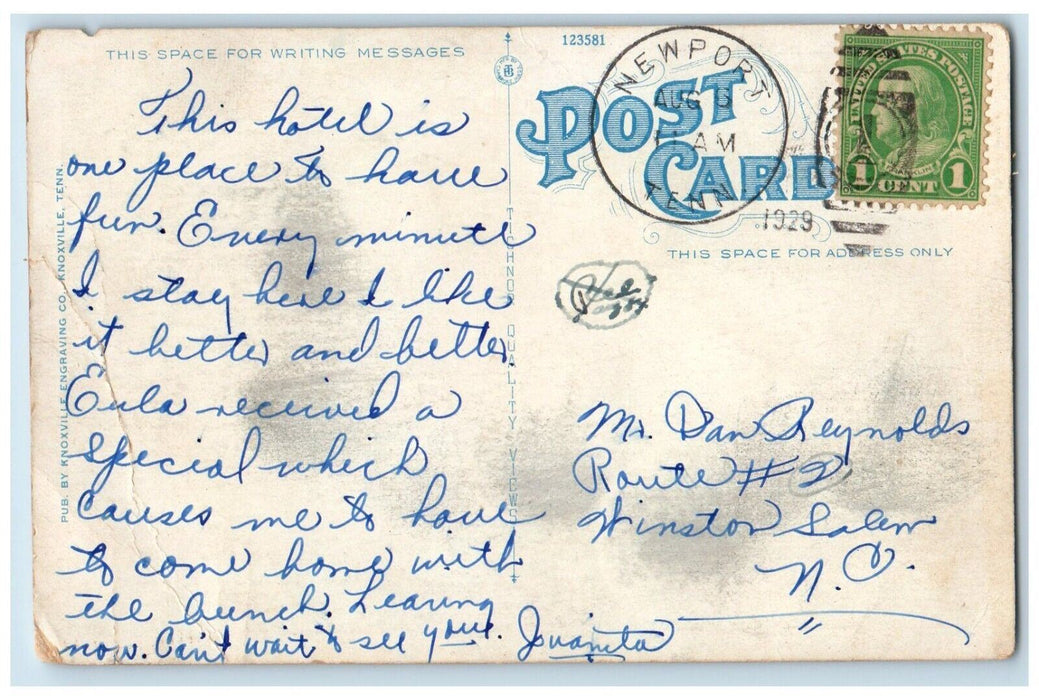 THIS SPACE FOR WRITING MESSAGES
This hotel is
one place to have
fun. Every minute
I stay here I like
it better and better.
Eula received a
special which
causes me to have
to come home with
the bunch. Leaving
now. Can't wait to see you. Juanita
PUB. BY KNOXVILLE ENGRAVING CO., KNOXVILLE, TENN.
TECHNO QUALITY VIEWS
123581
POST CARD
NEWPORT
AUG
11 AM
TENN.
1929
UNITED STATES POSTAGE
FRANKLIN
1 CENT 1
THIS SPACE FOR ADDRESS ONLY
Mr. Dan Reynolds
Route #2
Winston Salem
N.C.